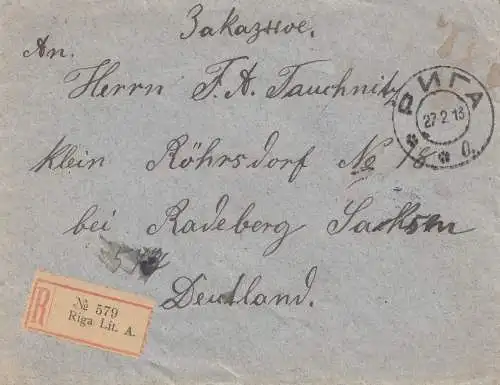 Заказное.
An.
Herrn F. A. Tauchnitz
РИГА
27 2 13
О.
Klein Röhrsdorf № 18
bei Radeberg Sachsen
Deutland.
R
№ 579
Riga Lit. A.